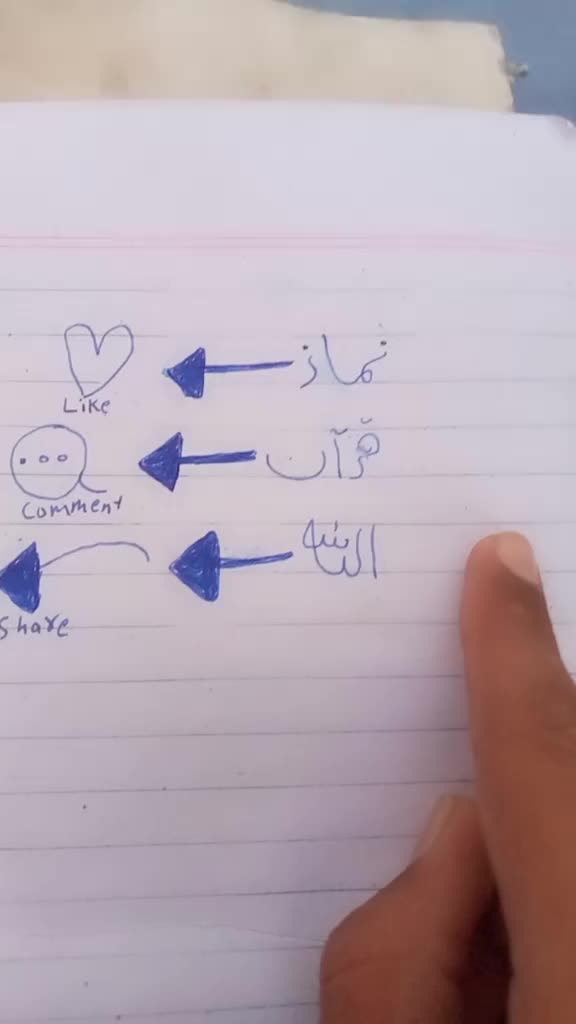 نماز
Like
قرآن
Comment
الله
Share